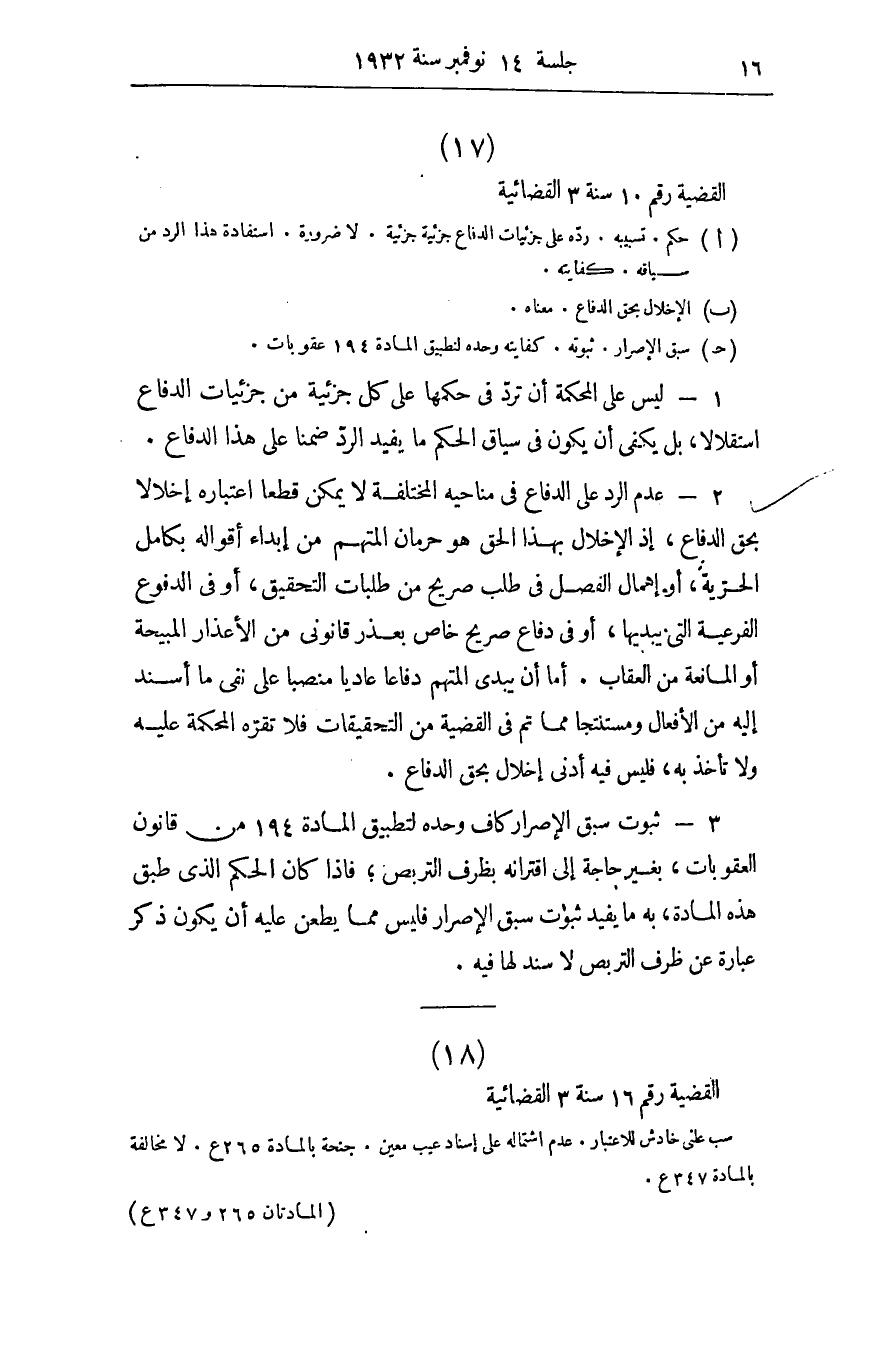 ١٦ جلسة ١٤ نوفمبر سنة ١٩٣٢
(١٧)
القضية رقم ١٠ سنة ٣ القضائية
(أ) حكم . تسبيبه . ردّه على جزئيات الدفاع جزئية جزئية . لا ضرورة . استفادة هذا الرد من
سياقه . كفايته .
(ب) الإخلال بحق الدفاع . معناه .
(حـ) سبق الإصرار . ثبوته . كفايته وحده لتطبيق المادة ١٩٤ عقوبات .
١ — ليس على المحكمة أن تردّ فى حكمها على كل جزئية من جزئيات الدفاع
استقلالا، بل يكفى أن يكون فى سياق الحكم ما يفيد الردّ ضمنا على هذا الدفاع .
٢ — عدم الرد على الدفاع فى مناحيه المختلفة لا يمكن قطعا اعتباره إخلالا
بحق الدفاع ، إذ الإخلال بهذا الحق هو حرمان المتهم من إبداء أقواله بكامل
الحرية، أو إهمال الفصل فى طلب صريح من طلبات التحقيق، أو فى الدفوع
الفرعية التى يبديها ، أو فى دفاع صريح خاص بعذر قانونى من الأعذار المبيحة
أو المانعة من العقاب . أما أن يبدى المتهم دفاعا عاديا منصبا على نفى ما أسند
إليه من الأفعال ومستنتجا مما تم فى القضية من التحقيقات فلا تقرّه المحكمة عليه
ولا تأخذ به، فليس فيه أدنى إخلال بحق الدفاع .
٣ — ثبوت سبق الإصرار كاف وحده لتطبيق المادة ١٩٤ من قانون
العقوبات ، بغير حاجة إلى اقترانه بظرف التربص ؛ فاذا كان الحكم الذى طبق
هذه المادة، به ما يفيد ثبوت سبق الإصرار فليس مما يطعن عليه أن يكون ذكر
عبارة عن ظرف التربص لا سند لها فيه .
(١٨)
القضية رقم ١٦ سنة ٣ القضائية
سب علنى خادش للاعتبار . عدم اشتماله على إسناد عيب معين . جنحة بالمادة ٢٦٥ع . لا مخالفة
بالمادة ٣٤٧ع .
(المادتان ٢٦٥ و٣٤٧ع)